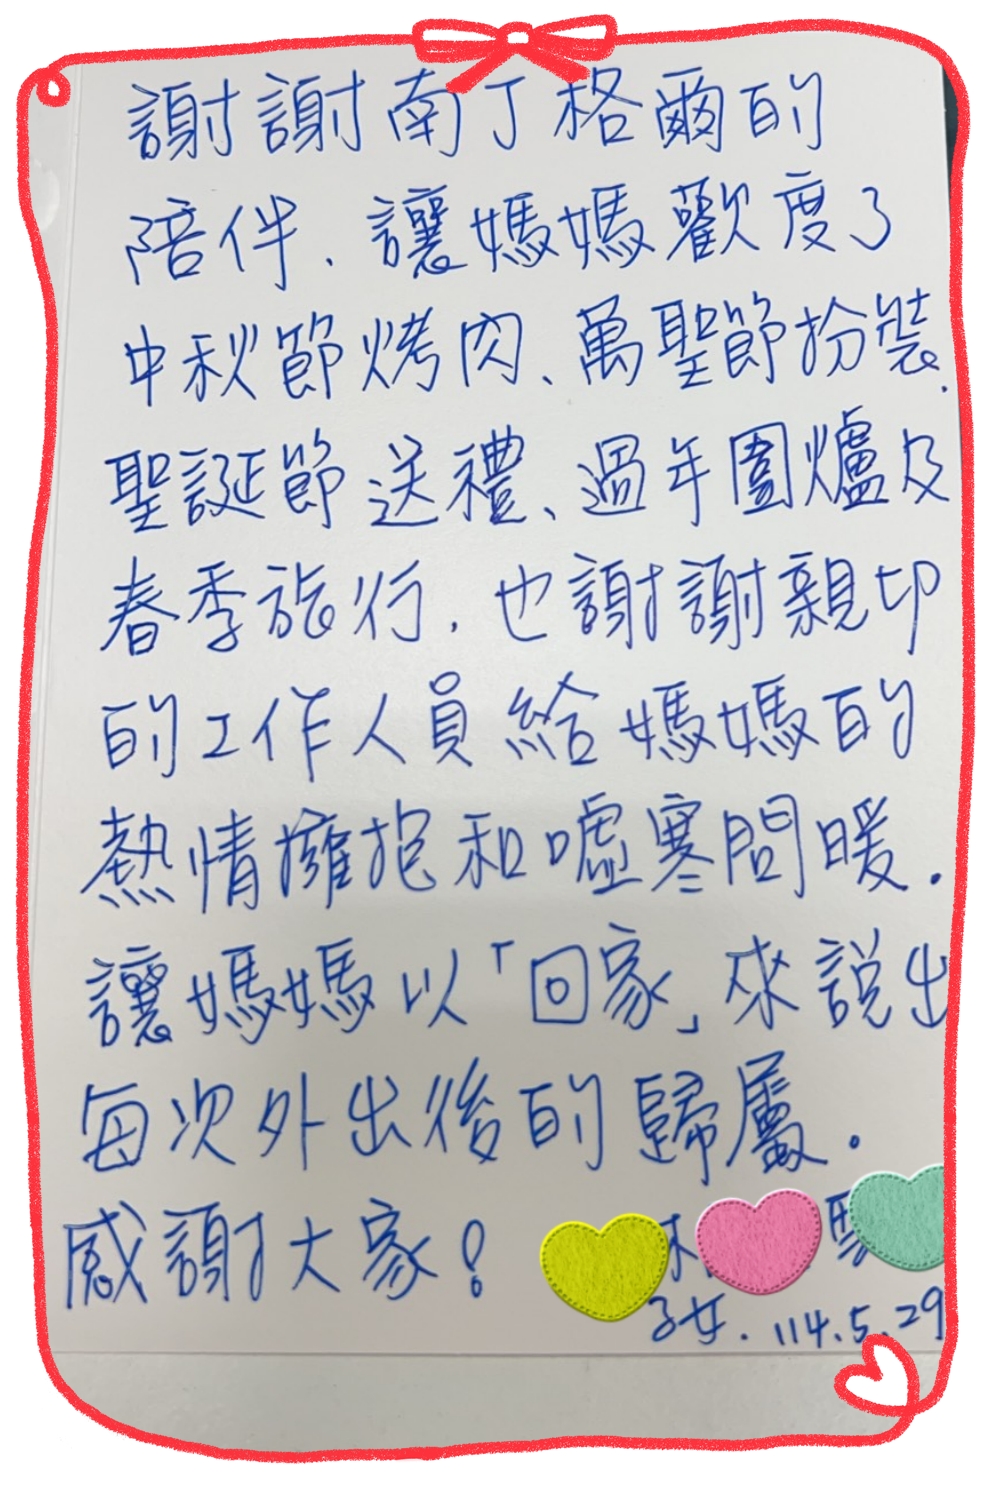 謝謝南丁格爾的
陪伴、讓媽媽歡度了
中秋節烤肉、萬聖節扮裝、
聖誕節送禮、過年圍爐及
春季旅行.也謝謝親切
的工作人員給媽媽的
熱情擁抱和噓寒問暖.
讓媽媽以「回家」來說出
每次外出後的歸屬.
感謝大家!
子女.114.5.29